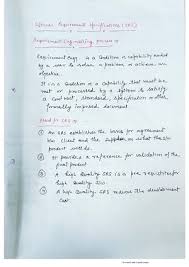 Software Requirement Specifications (SRS)
Requirement Engineering process
Requirement Engg. is a Condition or capability needed
by a user to solve a problem or achieve an
objective.
It is a Condition or a Capability that must be
met or possessed by a system to satisfy
a contract, standard, specification or other
formally imposed document.
Need for SRS
① An SRS establishes the basis for agreement
b/w client and the supplier on what the s/w
product needs.
② It provides a reference for validation of the
final product
③ A high Quality SRS is a pre-requisite for
high Quality S/w.
④ A high Quality SRS reduces the development
cost